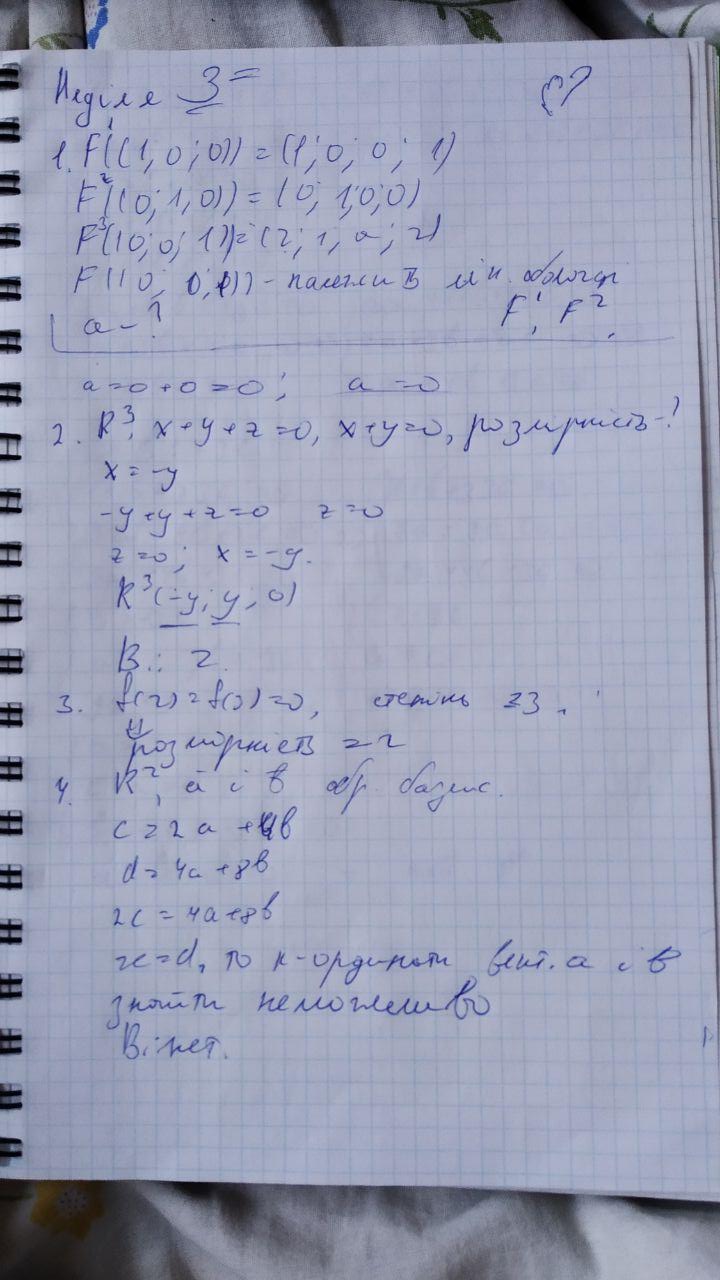 Неділя 3
1. F¹((1; 0; 0)) = (1; 0; 0; 1)
F²((0; 1, 0)) = (0; 1; 0; 0)
F³((0; 0; 1)) = (2; 1; a; 2)
F((0; 0; 1)) - належить лін. оболонці
a - ? F¹, F²,
a = 0 + 0 = 0; a = 0
2. R³, x+y+z=0, x+y=0, розмірність-?
x = -y
-y+y+z=0 z=0
z=0; x = -y.
R³(-y; y; 0)
В.: 2.
3. f(2) = f(3) = 0, степінь ≤3,
розмірність = 2
4. R², a і b обр. базис.
c = 2a + 4b
d = 4a + 8b
2c = 4a + 8b
2c = d, то к-ординати вект. a і b
знайти неможливо
В: нет.